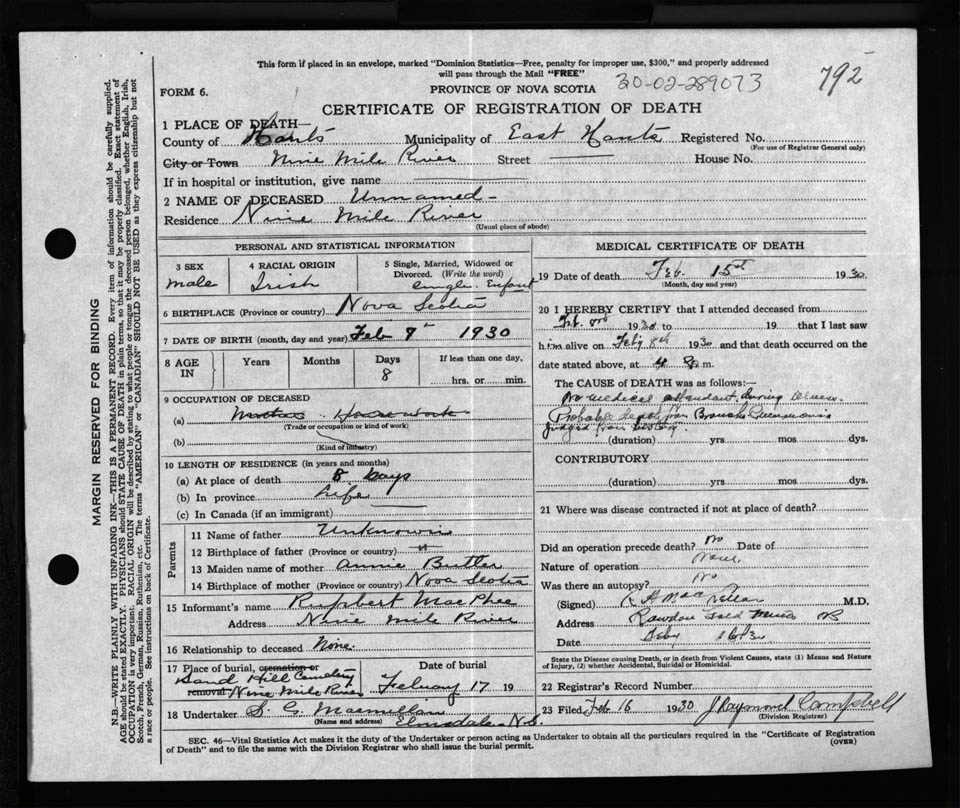 This form if placed in an envelope, marked "Dominion Statistics—Free, penalty for improper use, $300," and properly addressed
will pass through the Mail "FREE"
30-02-289073
792
FORM 6.
PROVINCE OF NOVA SCOTIA
CERTIFICATE OF REGISTRATION OF DEATH
1 PLACE OF DEATH—
County of Hants Municipality of East Hants Registered No.
(For use of Registrar General only)
City or Town Nine Mile River Street House No.
If in hospital or institution, give name
2 NAME OF DECEASED Unnamed -
Residence Nine Mile River
(Usual place of abode)
PERSONAL AND STATISTICAL INFORMATION
3 SEX
male
4 RACIAL ORIGIN
Irish
5 Single, Married, Widowed or
Divorced. (Write the word)
single Infant
6 BIRTHPLACE (Province or country) Nova Scotia
7 DATE OF BIRTH (month, day and year) Feb 7th 1930
8 AGE IN
Years Months Days
8
If less than one day,
hrs. or min.
9 OCCUPATION OF DECEASED
(a) Mother Housework
(Trade or occupation or kind of work)
(b)
(Kind of industry)
10 LENGTH OF RESIDENCE (in years and months)
(a) At place of death 8 days
(b) In province Life
(c) In Canada (if an immigrant)
Parents
11 Name of father Unknown
12 Birthplace of father (Province or country) "
13 Maiden name of mother Annie Butler
14 Birthplace of mother (Province or country) Nova Scotia
15 Informant's name Rupbert MacPhee
Address Nine Mile River
16 Relationship to deceased None.
17 Place of burial, cremation or
removal
Sand Hill Cemetery
Nine Mile River
Date of burial
Febuary 17 19
18 Undertaker S. G. Macmillan
(Name and address) Elmsdale N.S.
MEDICAL CERTIFICATE OF DEATH
19 Date of death Feb. 15th 1930
(Month, day and year)
20 I HEREBY CERTIFY that I attended deceased from
Feb. 1930 to 19 that I last saw
him alive on Feby 8th 1930 and that death occurred on the
date stated above, at 4 m.
The CAUSE OF DEATH was as follows:—
No medical attendant, during illness.
Probable death from Broncho Pneumonia
judged from history.
(duration) yrs mos dys.
CONTRIBUTORY
(duration) yrs mos dys.
21 Where was disease contracted if not at place of death?
Did an operation precede death? No Date of
Nature of operation None
Was there an autopsy? No
(Signed) M.D.
Address Rawdon Gold Mines NS
Date Feby 16/30
State the Disease causing Death, or in death from Violent Causes, state (1) Means and Nature
of Injury, (2) whether Accidental, Suicidal or Homicidal.
22 Registrar's Record Number
23 Filed Feb 16 1930 J Raymond Campbell
(Division Registrar)
SEC. 46—Vital Statistics Act makes it the duty of the Undertaker or person acting as Undertaker to obtain all the particulars required in the "Certificate of Registration
of Death" and to file the same with the Division Registrar who shall issue the burial permit.
(OVER)
MARGIN RESERVED FOR BINDING
N.B.—WRITE PLAINLY WITH UNFADING INK—THIS IS A PERMANENT RECORD. Every item of information should be carefully supplied.
AGE should be stated EXACTLY. PHYSICIANS should STATE CAUSE OF DEATH in plain terms, so that it may be properly classified. Exact statement of
OCCUPATION is very important. RACIAL ORIGIN will be described by stating to what people or tongue the deceased person belonged, whether English, Irish,
Scotch, French, German, Russian, Ruthenian, etc. The terms "AMERICAN" or "CANADIAN" SHOULD NOT BE USED as they express citizenship but not
a race or people. See instructions on back of Certificate.